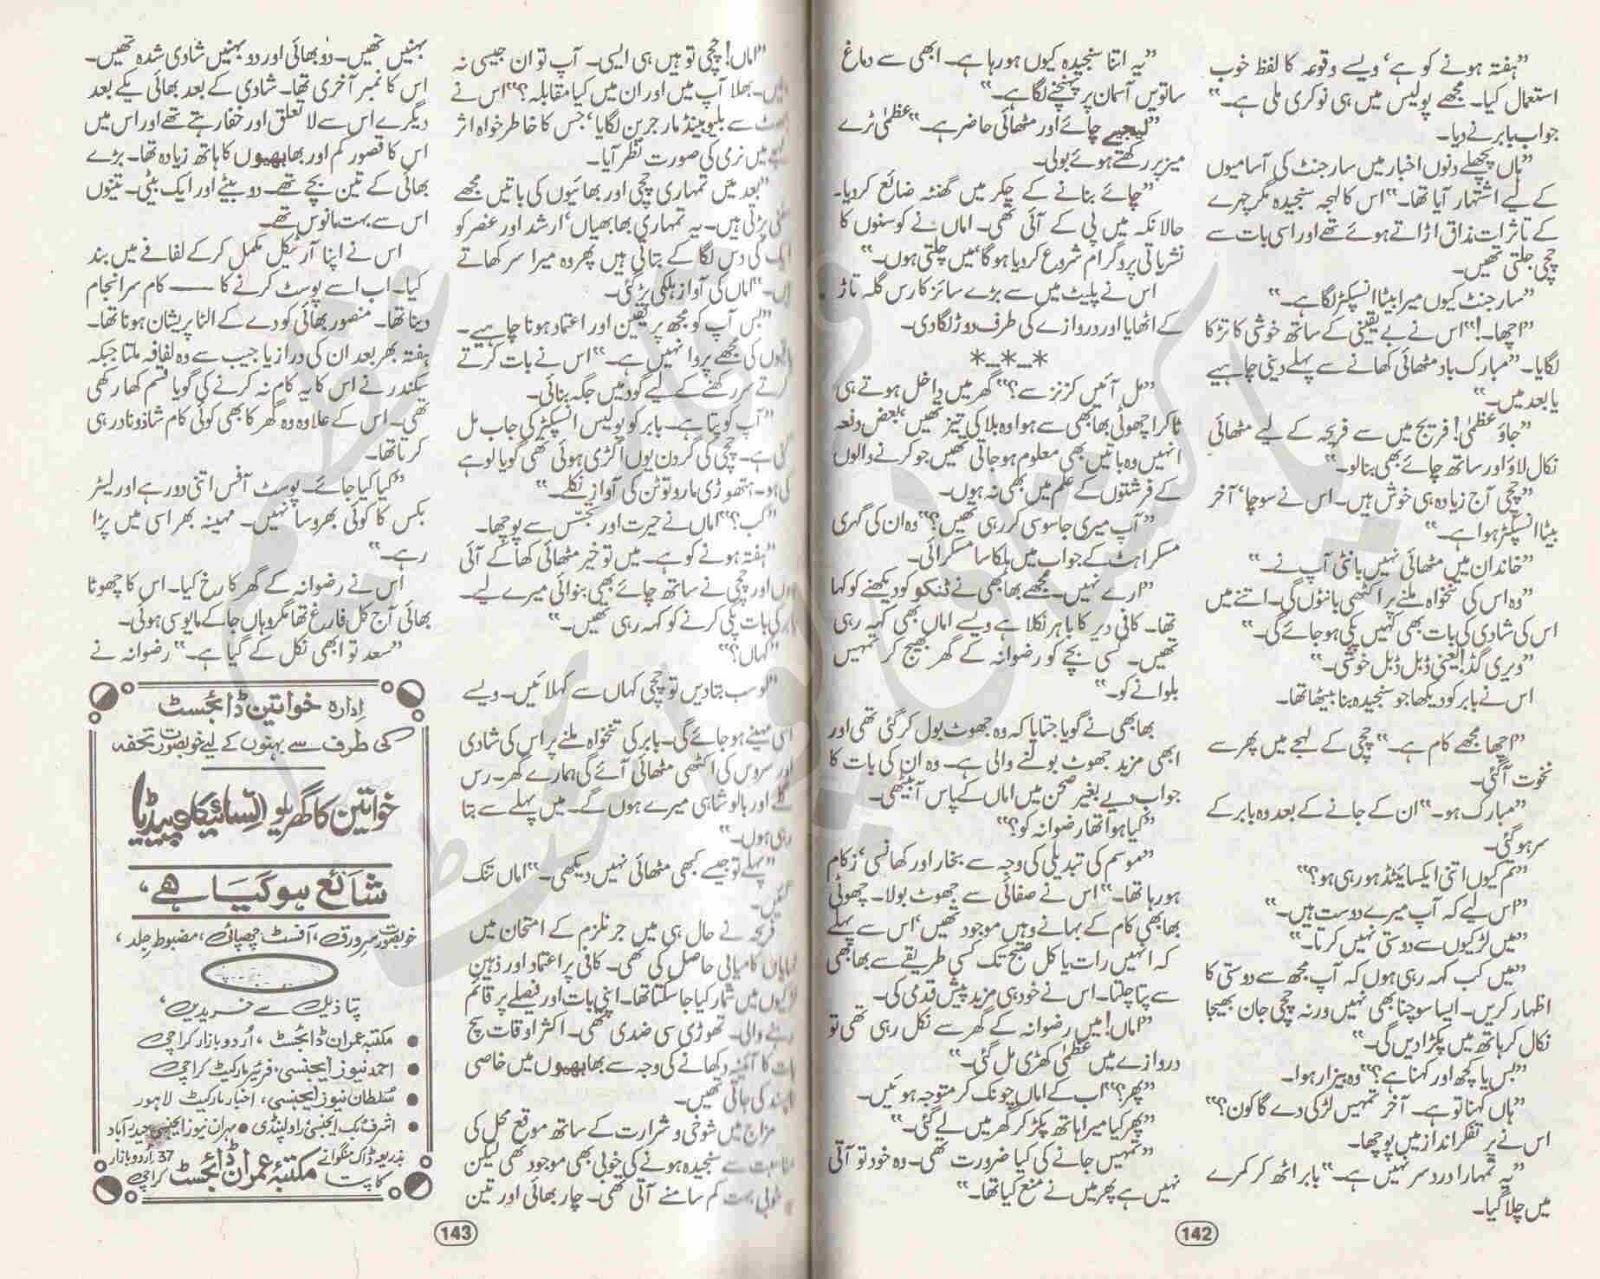 ”ہفتہ ہونے کو ہے‘ ویسے وقوعہ کا لفظ خوب
استعمال کیا۔ مجھے پولیس میں ہی نوکری ملی ہے۔“
جواب بابر نے دیا۔
”ہاں پچھلے دنوں اخبار میں سارجنٹ کی آسامیوں
کے لیے اشتہار آیا تھا۔“ اس کا لہجہ سنجیدہ مگر چہرے
کے تاثرات مذاق اڑاتے ہوئے تھے اور اسی بات سے
چچی جلتی تھیں۔
”سارجنٹ کیوں میرا بیٹا انسپکٹر لگا ہے۔“
”اچھا۔!“ اس نے بے یقینی کے ساتھ خوشی کا تڑکا
لگایا۔ ”مبارک باد مٹھائی کھانے سے پہلے دینی چاہیے
یا بعد میں۔“
”جاؤ عظمیٰ! فریج میں سے فریحہ کے لیے مٹھائی
نکال لاؤ اور ساتھ چائے بھی بنا لو۔“
”چچی آج زیادہ ہی خوش ہیں۔ اس نے سوچا‘ آخر
بیٹا انسپکٹر ہوا ہے۔“
”خاندان میں مٹھائی نہیں بانٹی آپ نے۔“
”وہ اس کی تنخواہ ملنے پر اکٹھی بانٹوں گی۔ اتنے میں
اس کی شادی کی بات بھی کہیں پکی ہو جائے گی۔“
”ویری گڈ! یعنی ڈبل ڈبل خوشی۔“
اس نے بابر کو دیکھا جو سنجیدہ بنا بیٹھا تھا۔
”اچھا مجھے کام ہے۔“ چچی کے لہجے میں پھر سے
نخوت آ گئی۔
”مبارک ہو۔“ ان کے جانے کے بعد وہ بابر کے
سر ہو گئی۔
”تم کیوں اتنی ایکسائیٹڈ ہو رہی ہو؟“
”اس لیے کہ آپ میرے دوست ہیں۔“
”میں لڑکیوں سے دوستی نہیں کرتا۔“
”میں کب کہہ رہی ہوں کہ آپ مجھ سے دوستی کا
اظہار کریں۔ ایسا سوچنا بھی نہیں ورنہ چچی جان بھیجا
نکال کر ہاتھ میں پکڑا دیں گی۔“
”بس یا کچھ اور کہنا ہے؟“ وہ بیزار ہوا۔
”ہاں کہنا تو ہے۔ آخر تمہیں لڑکی دے گا کون؟“
اس نے پر تفکر انداز میں پوچھا۔
”یہ تمہارا درد سر نہیں ہے۔“ بابر اٹھ کر کمرے
میں چلا گیا۔
”یہ اتنا سنجیدہ کیوں ہو رہا ہے۔ ابھی سے دماغ
ساتویں آسمان پر پہنچنے لگا ہے۔“
”لیجیے چائے اور مٹھائی حاضر ہے۔“ عظمیٰ ٹرے
میز پر رکھتے ہوئے بولی۔
”چائے بنانے کے چکر میں گھنٹہ ضائع کر دیا۔
حالانکہ میں پی کے آئی تھی۔ اماں نے کوسنوں کا
نشریاتی پروگرام شروع کر دیا ہو گا‘ میں چلتی ہوں۔“
اس نے پلیٹ میں سے بڑے سائز کا رس گلہ تاڑ
کے اٹھایا اور دروازے کی طرف دوڑ لگا دی۔
*۔*۔*
”مل آئیں کزنز سے؟“ گھر میں داخل ہوتے ہی
ٹاکرا چھوٹی بھابھی سے ہوا وہ بلا کی تیز تھیں‘ بعض دفعہ
انہیں وہ باتیں بھی معلوم ہو جاتی تھیں جو کرنے والوں
کے فرشتوں کے علم میں بھی نہ ہوں۔
”آپ میری جاسوسی کر رہی تھیں؟“ وہ ان کی گہری
مسکراہٹ کے جواب میں ہلکا سا مسکرائی۔
”ارے نہیں۔ مجھے بھابھی نے ٹنکو کو دیکھنے کو کہا
تھا۔ کافی دیر کا باہر نکلا ہے ویسے اماں بھی کہہ رہی
تھیں۔ کسی بچے کو رضوانہ کے گھر بھیج کر تمہیں
بلوانے کو۔“
بھابھی نے گویا جتایا کہ وہ جھوٹ بول کر گئی تھی اور
ابھی مزید جھوٹ بولنے والی ہے۔ وہ ان کی بات کا
جواب دیے بغیر صحن میں اماں کے پاس آ بیٹھی۔
”کیا ہوا تھا رضوانہ کو؟“
”موسم کی تبدیلی کی وجہ سے بخار اور کھانسی‘ زکام
ہو رہا تھا۔“ اس نے صفائی سے جھوٹ بولا۔ چھوٹی
بھابھی کام کے بہانے وہیں موجود تھیں‘ اس سے پہلے
کہ انہیں رات یا کل صبح تک کسی طریقے سے بھابھی
سے پتا چلتا۔ اس نے خود ہی مزید پیش قدمی کی۔
”اماں! میں رضوانہ کے گھر سے نکل رہی تھی تو
دروازے میں عظمیٰ کھڑی مل گئی۔“
”پھر؟“ اب کے اماں چونک کر متوجہ ہوئیں۔
”پھر کیا میرا ہاتھ پکڑ کر گھر میں لے گئی۔“
”تمہیں جانے کی کیا ضرورت تھی۔ وہ خود تو آتی
نہیں ہے پھر میں نے منع کیا تھا۔“
142
”اماں! چچی تو ہیں ہی ایسی۔ آپ تو ان جیسی نہ
بھلا آپ میں اور ان میں کیا مقابلہ؟“ اس نے
سے بلیو بینڈ مارجرین لگایا‘ جس کا خاطر خواہ اثر
میں نرمی کی صورت نظر آیا۔
”بعد میں تمہاری چچی اور بھائیوں کی باتیں مجھے
پڑتی ہیں۔ یہ تمہاری بھابھیاں‘ ارشد اور عنصر کو
کی دس لگا کے بتاتی ہیں پھر وہ میرا سر کھاتے
“ اماں کی آواز ہلکی پڑ گئی۔
”بس آپ کو مجھ پر یقین اور اعتماد ہونا چاہیے۔
کی مجھے پروا نہیں ہے۔“ اس نے بات کرتے
کرتے سر رکھنے کے لیے گود میں جگہ بنائی۔
”آپ کو پتا ہے۔ بابر کو پولیس انسپکٹر کی جاب مل
گئی ہے۔ چچی کی گردن یوں اکڑی ہوئی تھی گویا لوہے
کی ہو۔ ہتھوڑی مارو تو ٹن کی آواز نکلے۔“
”کب؟“ اماں نے حیرت اور تجسّس سے پوچھا۔
”ہفتہ ہونے کو ہے۔ میں تو خیر مٹھائی کھا کے آئی
ہوں اور چچی نے ساتھ چائے بھی بنوائی میرے لیے۔
کی بات پکی کرنے کو کہہ رہی تھیں۔“
”کہاں؟“
”لو سب بتا دیں تو چچی کہاں سے کہلائیں۔ ویسے
اسی مہینے ہو جائے گی۔ بابر کی تنخواہ ملنے پر اس کی شادی
اور سروس کی اکٹھی مٹھائی آئے گی ہمارے گھر۔ رس
گلے اور بالو شاہی میرے ہوں گے۔ میں پہلے سے بتا
رہی ہوں۔“
”پہلے تو جیسے کبھی مٹھائی نہیں دیکھی۔“ اماں تنک
گئیں۔
فریحہ نے حال ہی میں جرنلزم کے امتحان میں
نمایاں کامیابی حاصل کی تھی۔ کافی پر اعتماد اور ذہین
لڑکیوں میں شمار کیا جا سکتا تھا۔ اپنی بات اور فیصلے پر قائم
رہنے والی۔ تھوڑی سی ضدی تھی۔ اکثر اوقات سچ
بات کا آئینہ دکھانے کی وجہ سے بھابھیوں میں خاصی
ناپسند کی جاتی تھیں۔
مزاج میں شوخی و شرارت کے ساتھ موقع محل کی
مناسبت سے سنجیدہ ہونے کی خوبی بھی موجود تھی لیکن
یہ خوبی بہت کم سامنے آتی تھی۔ چار بھائی اور تین
بہنیں تھیں۔ دو بھائی اور دو بہنیں شادی شدہ تھیں۔
اس کا نمبر آخری تھا۔ شادی کے بعد بھائی یکے بعد
دیگرے اس سے لا تعلق اور خفا رہتے تھے اور اس میں
اس کا قصور کم اور بھابھیوں کا ہاتھ زیادہ تھا۔ بڑے
بھائی کے تین بچے تھے۔ دو بیٹے اور ایک بیٹی۔ تینوں
اس سے بہت مانوس تھے۔
اس نے اپنا آرٹیکل مکمل کر کے لفافے میں بند
کیا۔ اب اسے پوسٹ کرنے کا —— کام سر انجام
دینا تھا۔ منصور بھائی کو دے کے الٹا پریشان ہونا تھا۔
ہفتہ بھر بعد ان کی دراز یا جیب سے وہ لفافہ ملتا جبکہ
سکندر نے اس کا یہ کام نہ کرنے کی گویا قسم کھا رکھی
تھی۔ اس کے علاوہ وہ گھر کا بھی کوئی کام شاذ و نادر ہی
کرتا تھا۔
”کیا کیا جائے۔ پوسٹ آفس اتنی دور ہے اور لیٹر
بکس کا کوئی بھروسا نہیں۔ مہینہ بھر اسی میں پڑا
رہے۔“
اس نے رضوانہ کے گھر کا رخ کیا۔ اس کا چھوٹا
بھائی آج کل فارغ تھا مگر وہاں جا کے مایوسی ہوئی۔
”سعد تو ابھی نکل کے گیا ہے۔“ رضوانہ نے
ادارہ خواتین ڈائجسٹ
کی طرف سے بہنوں کے لیے خوبصورت تحفہ
خواتین کا گھریلو انسائیکلوپیڈیا
شائع ہو گیا ہے،
خوبصورت سرورق، آفسٹ چھپائی، مضبوط جلد،
پتا ذیل سے خریدیں،
• مکتبہ عمران ڈائجسٹ، اردو بازار کراچی
• احمد نیوز ایجنسی، فریئر مارکیٹ کراچی
• سلطان نیوز ایجنسی، اخبار مارکیٹ لاہور
• اشرف بک ایجنسی راولپنڈی • مہران نیوز ایجنسی حیدرآباد
بذریعہ ڈاک منگوانے کا پتا مکتبہ عمران ڈائجسٹ 37 اردو بازار کراچی
143